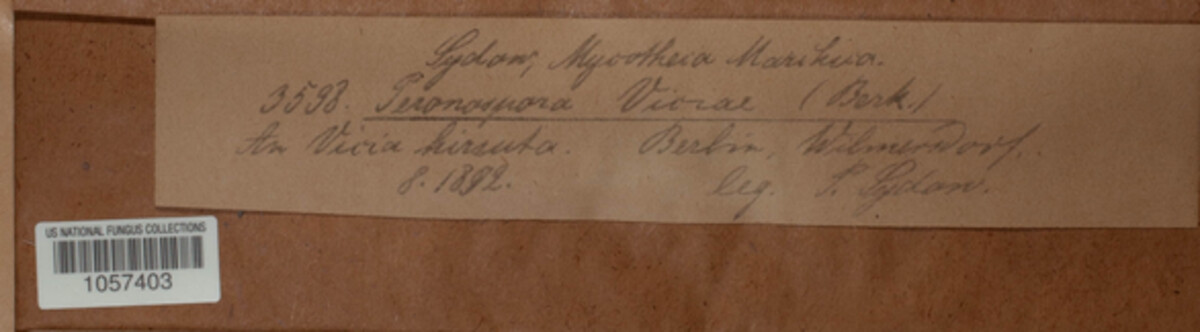 Sydow, Mycotheca Marchica.
3598. Peronospora Viciae (Berk.)
An Vicia hirsuta. Berlin, Wilmersdorf.
8. 1892. leg. P. Sydow.
US NATIONAL FUNGUS COLLECTIONS
1057403